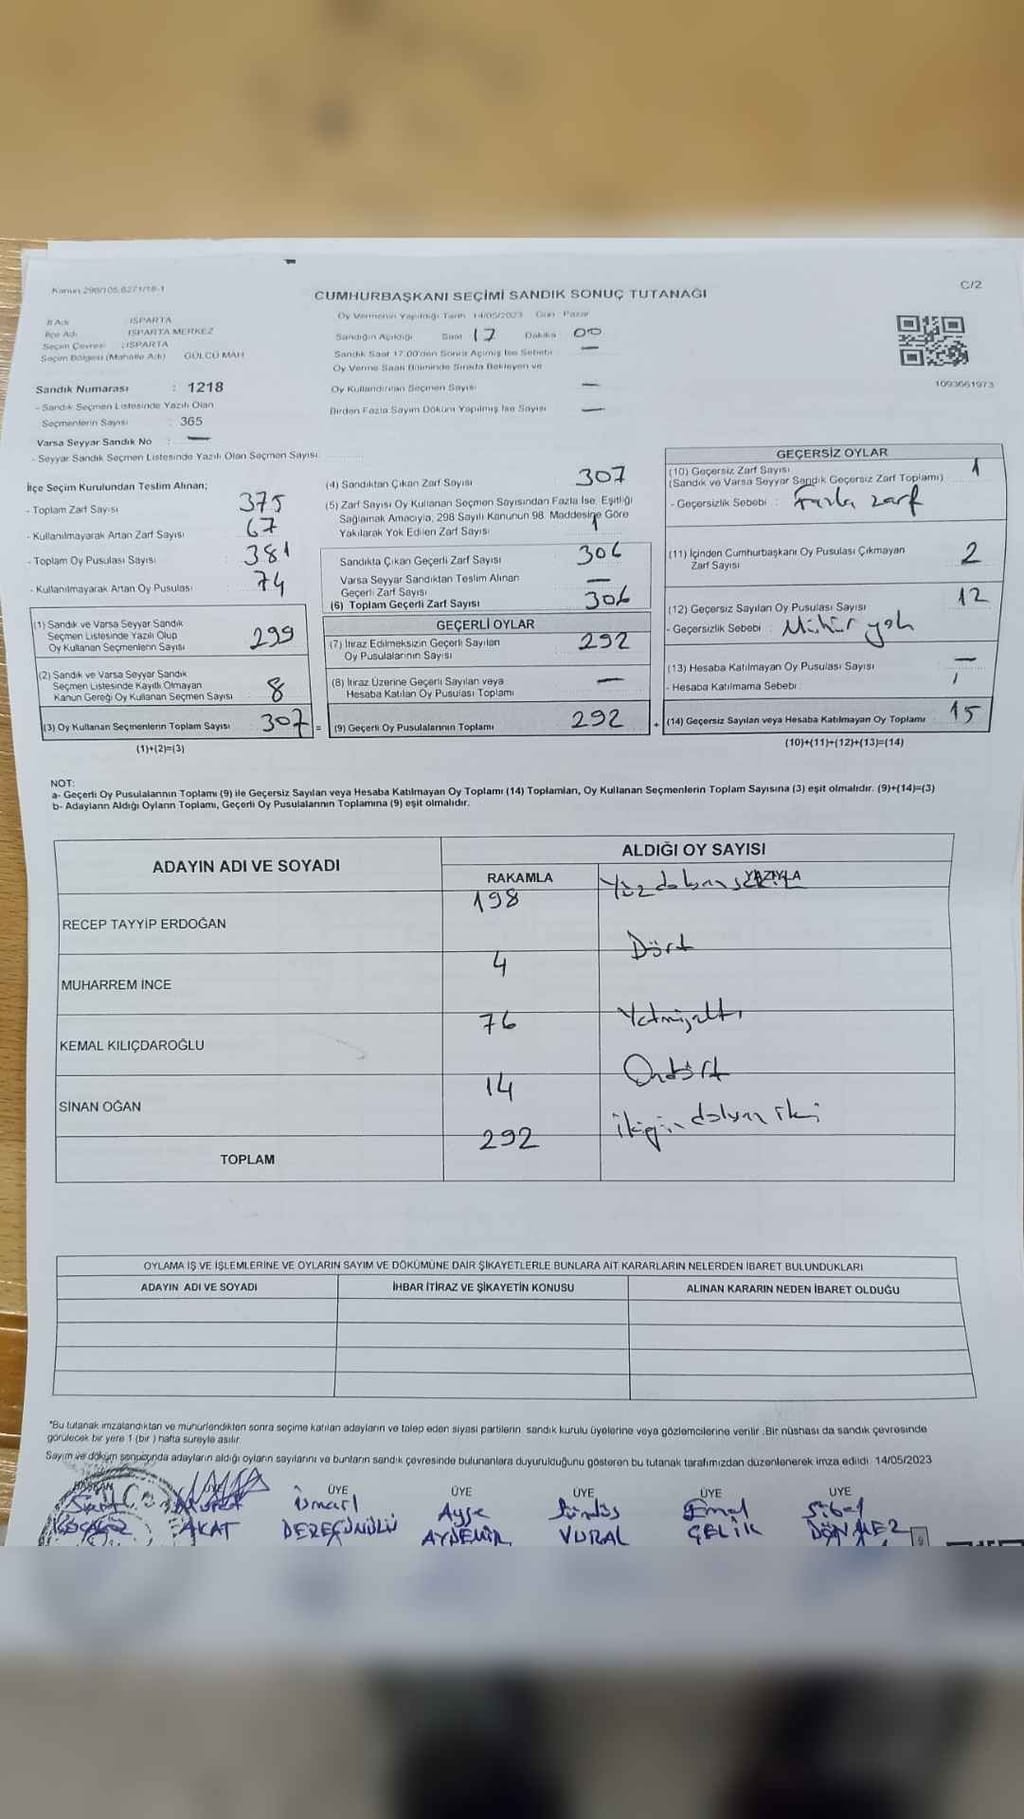 Kanun 298/105,6271/18-1
CUMHURBAŞKANI SEÇİMİ SANDIK SONUÇ TUTANAĞI
C/2
İl Adı : ISPARTA
İlçe Adı : ISPARTA MERKEZ
Seçim Çevresi : ISPARTA
Seçim Bölgesi (Mahalle Adı) GÜLCÜ MAH
Sandık Numarası : 1218
- Sandık Seçmen Listesinde Yazılı Olan
Seçmenlerin Sayısı 365
Varsa Seyyar Sandık No : —
- Seyyar Sandık Seçmen Listesinde Yazılı Olan Seçmen Sayısı
Oy Vermenin Yapıldığı Tarih 14/05/2023 Gün Pazar
Sandığın Açıldığı Saat 17 Dakika 00
Sandık Saat 17.00'den Sonra Açılmış İse Sebebi —
Oy Verme Saati Bitiminde Sırada Bekleyen ve
Oy Kullandırılan Seçmen Sayısı —
Birden Fazla Sayım Döküm Yapılmış İse Sayısı —
1093661973
İlçe Seçim Kurulundan Teslim Alınan;
- Toplam Zarf Sayısı 375
- Kullanılmayarak Artan Zarf Sayısı 67
- Toplam Oy Pusulası Sayısı 381
- Kullanılmayarak Artan Oy Pusulası 74
(1) Sandık ve Varsa Seyyar Sandık
Seçmen Listesinde Yazılı Olup
Oy Kullanan Seçmenlerin Sayısı 299
(2) Sandık ve Varsa Seyyar Sandık
Seçmen Listesinde Kayıtlı Olmayan
Kanun Gereği Oy Kullanan Seçmen Sayısı 8
(3) Oy Kullanan Seçmenlerin Toplam Sayısı 307 =
(1)+(2)=(3)
(4) Sandıktan Çıkan Zarf Sayısı 307
(5) Zarf Sayısı Oy Kullanan Seçmen Sayısından Fazla İse, Eşitliği
Sağlamak Amacıyla, 298 Sayılı Kanunun 98. Maddesine Göre
Yakılarak Yok Edilen Zarf Sayısı
Sandıkta Çıkan Geçerli Zarf Sayısı 306
Varsa Seyyar Sandıktan Teslim Alınan
Geçerli Zarf Sayısı —
(6) Toplam Geçerli Zarf Sayısı 306
GEÇERLİ OYLAR
(7) İtiraz Edilmeksizin Geçerli Sayılan
Oy Pusulalarının Sayısı 292
(8) İtiraz Üzerine Geçerli Sayılan veya
Hesaba Katılan Oy Pusulası Toplamı —
(9) Geçerli Oy Pusulalarının Toplamı 292 +
GEÇERSİZ OYLAR
(10) Geçersiz Zarf Sayısı 1
(Sandık ve Varsa Seyyar Sandık Geçersiz Zarf Toplamı)
- Geçersizlik Sebebi : Fazla zarf
(11) İçinden Cumhurbaşkanı Oy Pusulası Çıkmayan
Zarf Sayısı 2
(12) Geçersiz Sayılan Oy Pusulası Sayısı 12
- Geçersizlik Sebebi : Mühür yok
(13) Hesaba Katılmayan Oy Pusulası Sayısı —
- Hesaba Katılmama Sebebi :
(14) Geçersiz Sayılan veya Hesaba Katılmayan Oy Toplamı 15
(10)+(11)+(12)+(13)=(14)
NOT:
a- Geçerli Oy Pusulalarının Toplamı (9) ile Geçersiz Sayılan veya Hesaba Katılmayan Oy Toplamı (14) Toplamları, Oy Kullanan Seçmenlerin Toplam Sayısına (3) eşit olmalıdır. (9)+(14)=(3)
b- Adayların Aldığı Oyların Toplamı, Geçerli Oy Pusulalarının Toplamına (9) eşit olmalıdır.
ADAYIN ADI VE SOYADI
ALDIĞI OY SAYISI
RAKAMLA YAZIYLA
RECEP TAYYİP ERDOĞAN 198 Yüz doksan sekiz
MUHARREM İNCE 4 Dört
KEMAL KILIÇDAROĞLU 76 Yetmişaltı
SİNAN OĞAN 14 Ondört
TOPLAM 292 İkiyüzdoksan iki
OYLAMA İŞ VE İŞLEMLERİNE VE OYLARIN SAYIM VE DÖKÜMÜNE DAİR ŞİKAYETLERLE BUNLARA AİT KARARLARIN NELERDEN İBARET BULUNDUKLARI
ADAYIN ADI VE SOYADI İHBAR İTİRAZ VE ŞİKAYETİN KONUSU ALINAN KARARIN NEDEN İBARET OLDUĞU
*Bu tutanak imzalandıktan ve mühürlendikten sonra seçime katılan adayların ve talep eden siyasi partilerin sandık kurulu üyelerine veya gözlemcilerine verilir. Bir nüshası da sandık çevresinde
görülecek bir yere 1 (bir) hafta süreyle asılır
Sayım ve döküm sonucunda adayların aldığı oyların sayılarını ve bunların sandık çevresinde bulunanlara duyurulduğunu gösteren bu tutanak tarafımızdan düzenlenerek imza edildi. 14/05/2023
BAŞKAN ÜYE ÜYE ÜYE ÜYE ÜYE
İsmail Ayşe Gündüs Emel Sibel
AKAT DEREGÜNÜLÜ AYDEMİR VURAL ÇELİK DÖNMEZ